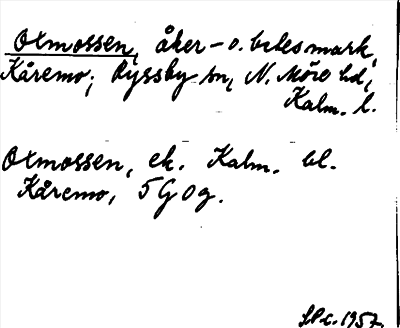 Oxmossen, åker- o. betesmark,
Kåremo; Ryssby sn, N. Möre hd,
Kalm. l.
Oxmossen, ek. Kalm. bl.
Kåremo, 5 G 0 g.
1957.